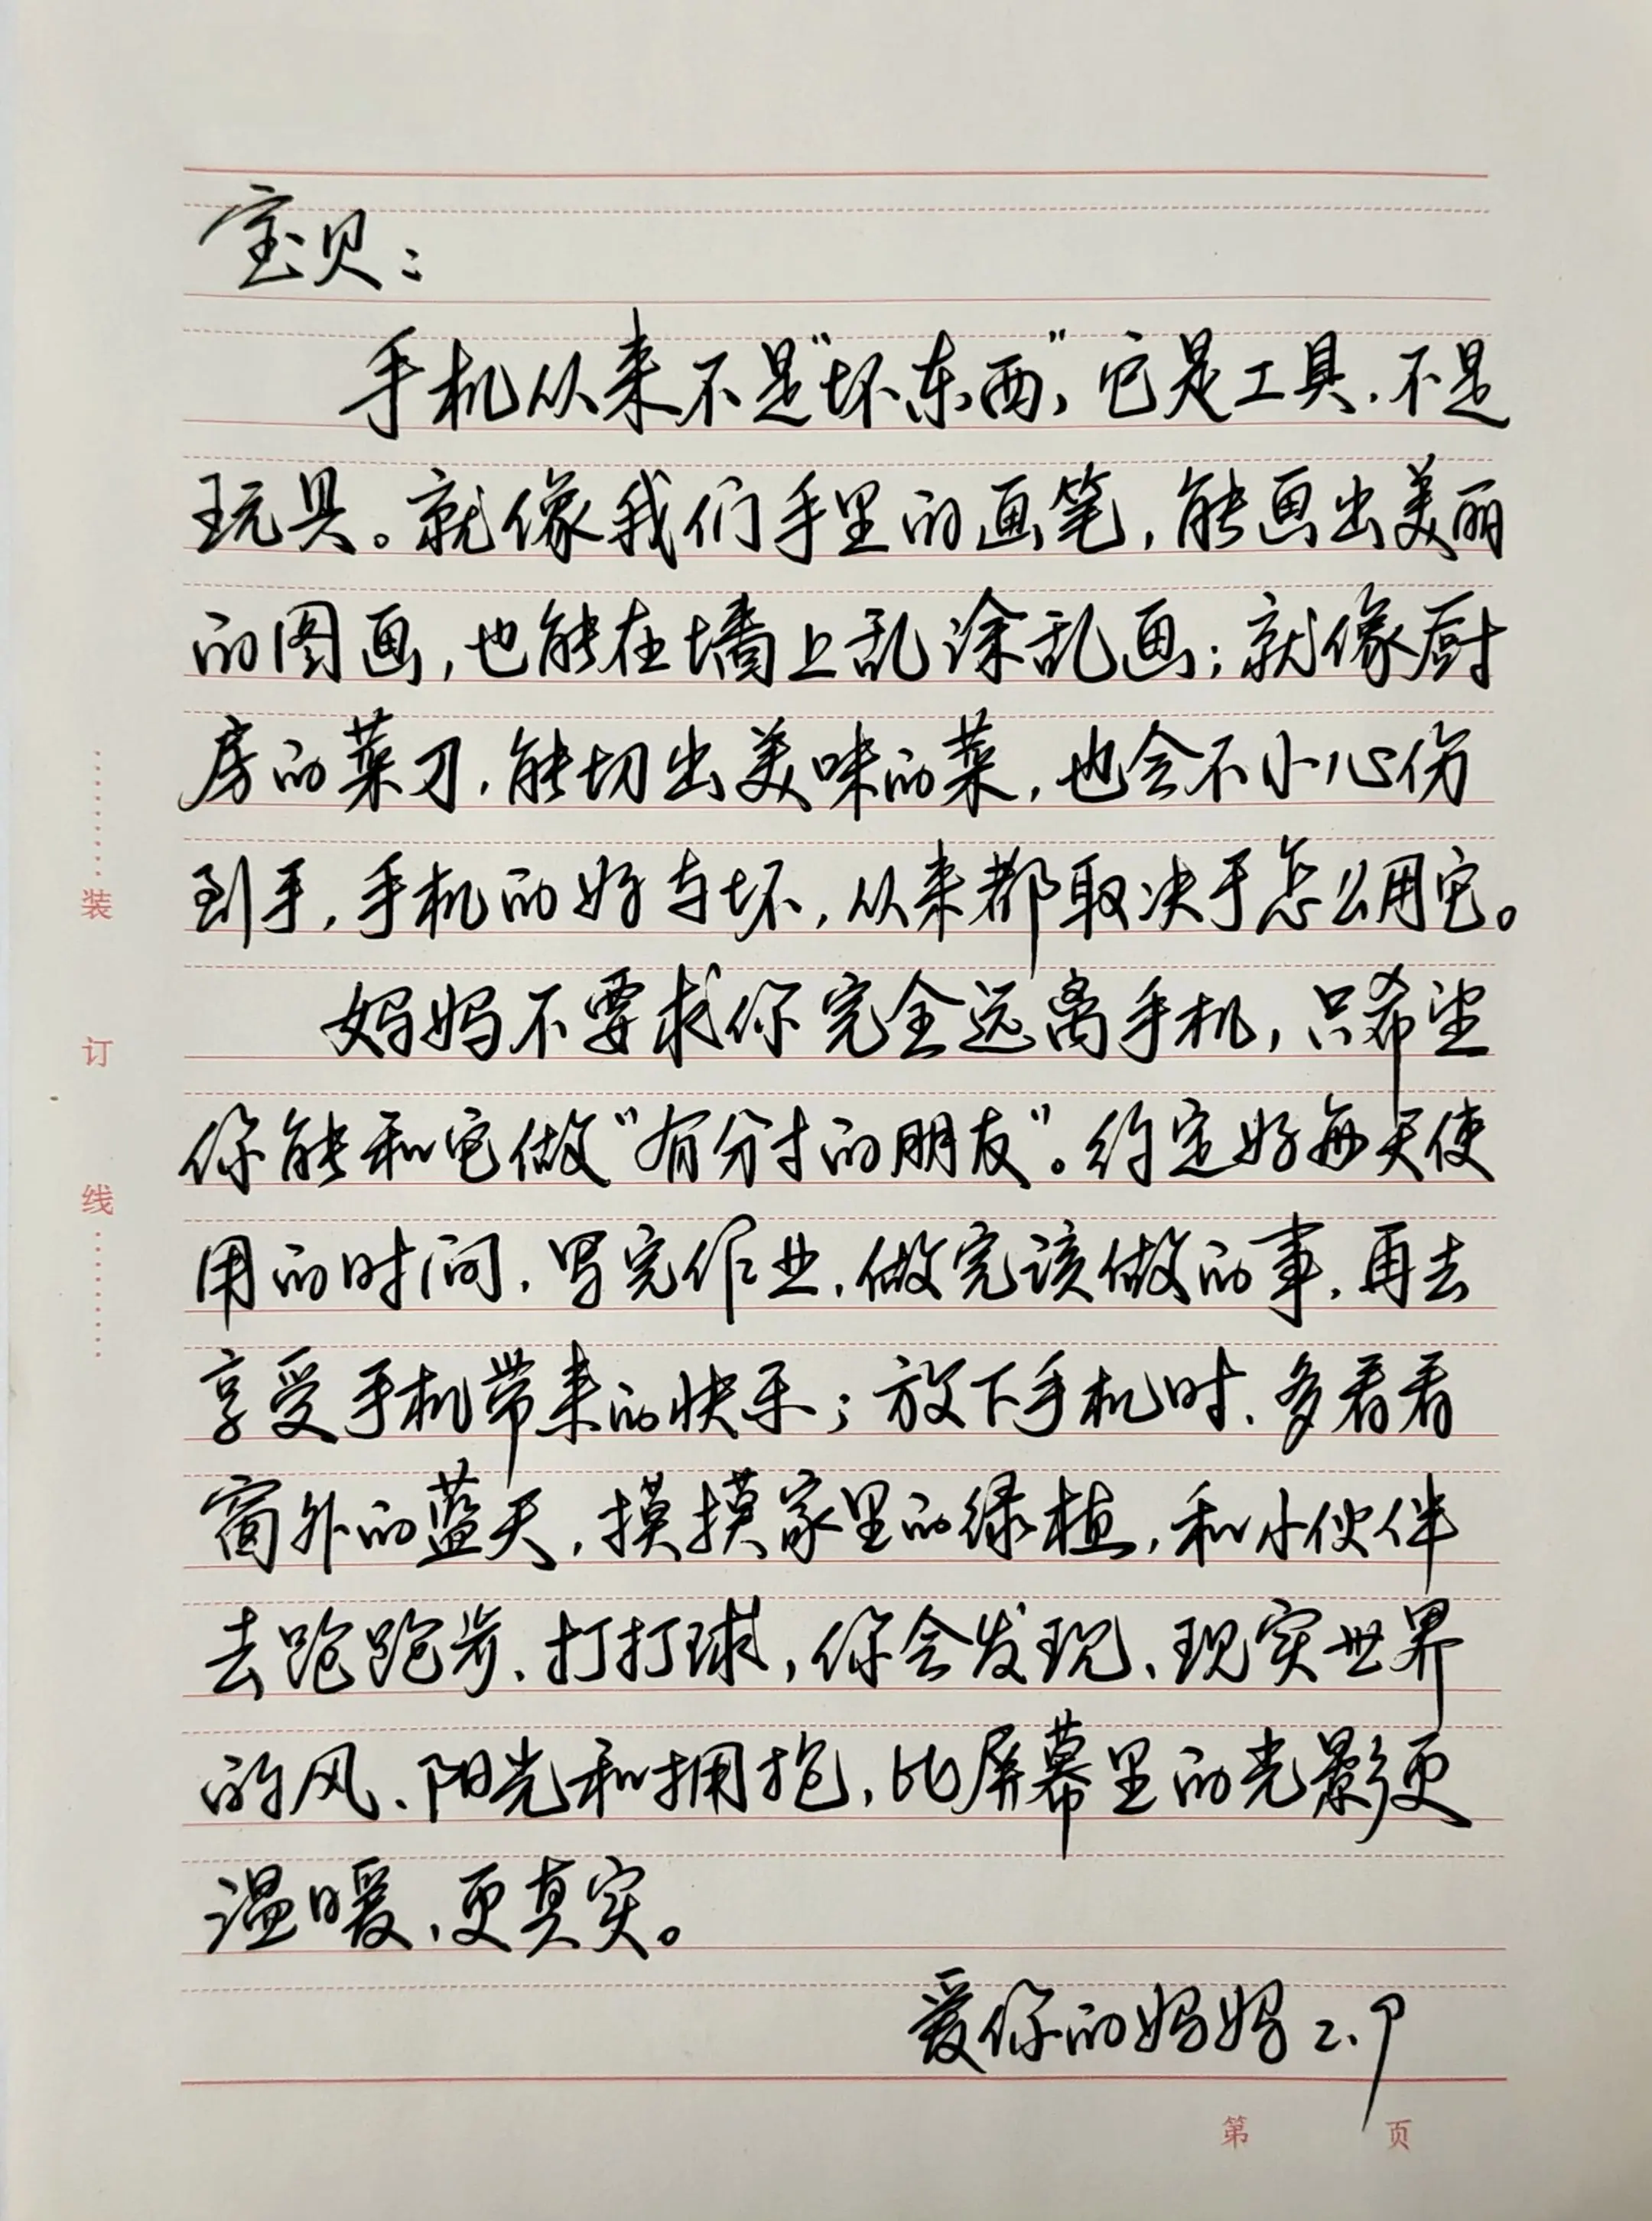 宝贝：
手机从来不是“坏东西”，它是工具，不是
玩具。就像我们手里的画笔，能画出美丽
的图画，也能在墙上乱涂乱画；就像厨
房的菜刀，能切出美味的菜，也会不小心伤
到手，手机的好与坏，从来都取决于怎么用它。
妈妈不要求你完全远离手机，只希望
你能和它做“有分寸的朋友”。约定好每天使
用的时间，写完作业，做完该做的事，再去
享受手机带来的快乐；放下手机时、多看看
窗外的蓝天，摸摸家里的绿植，和小伙伴
去跑跑步、打打球，你会发现、现实世界
的风、阳光和拥抱，比屏幕里的光影更
温暖、更真实。
爱你的妈妈 2.9
装
订
线
第 页